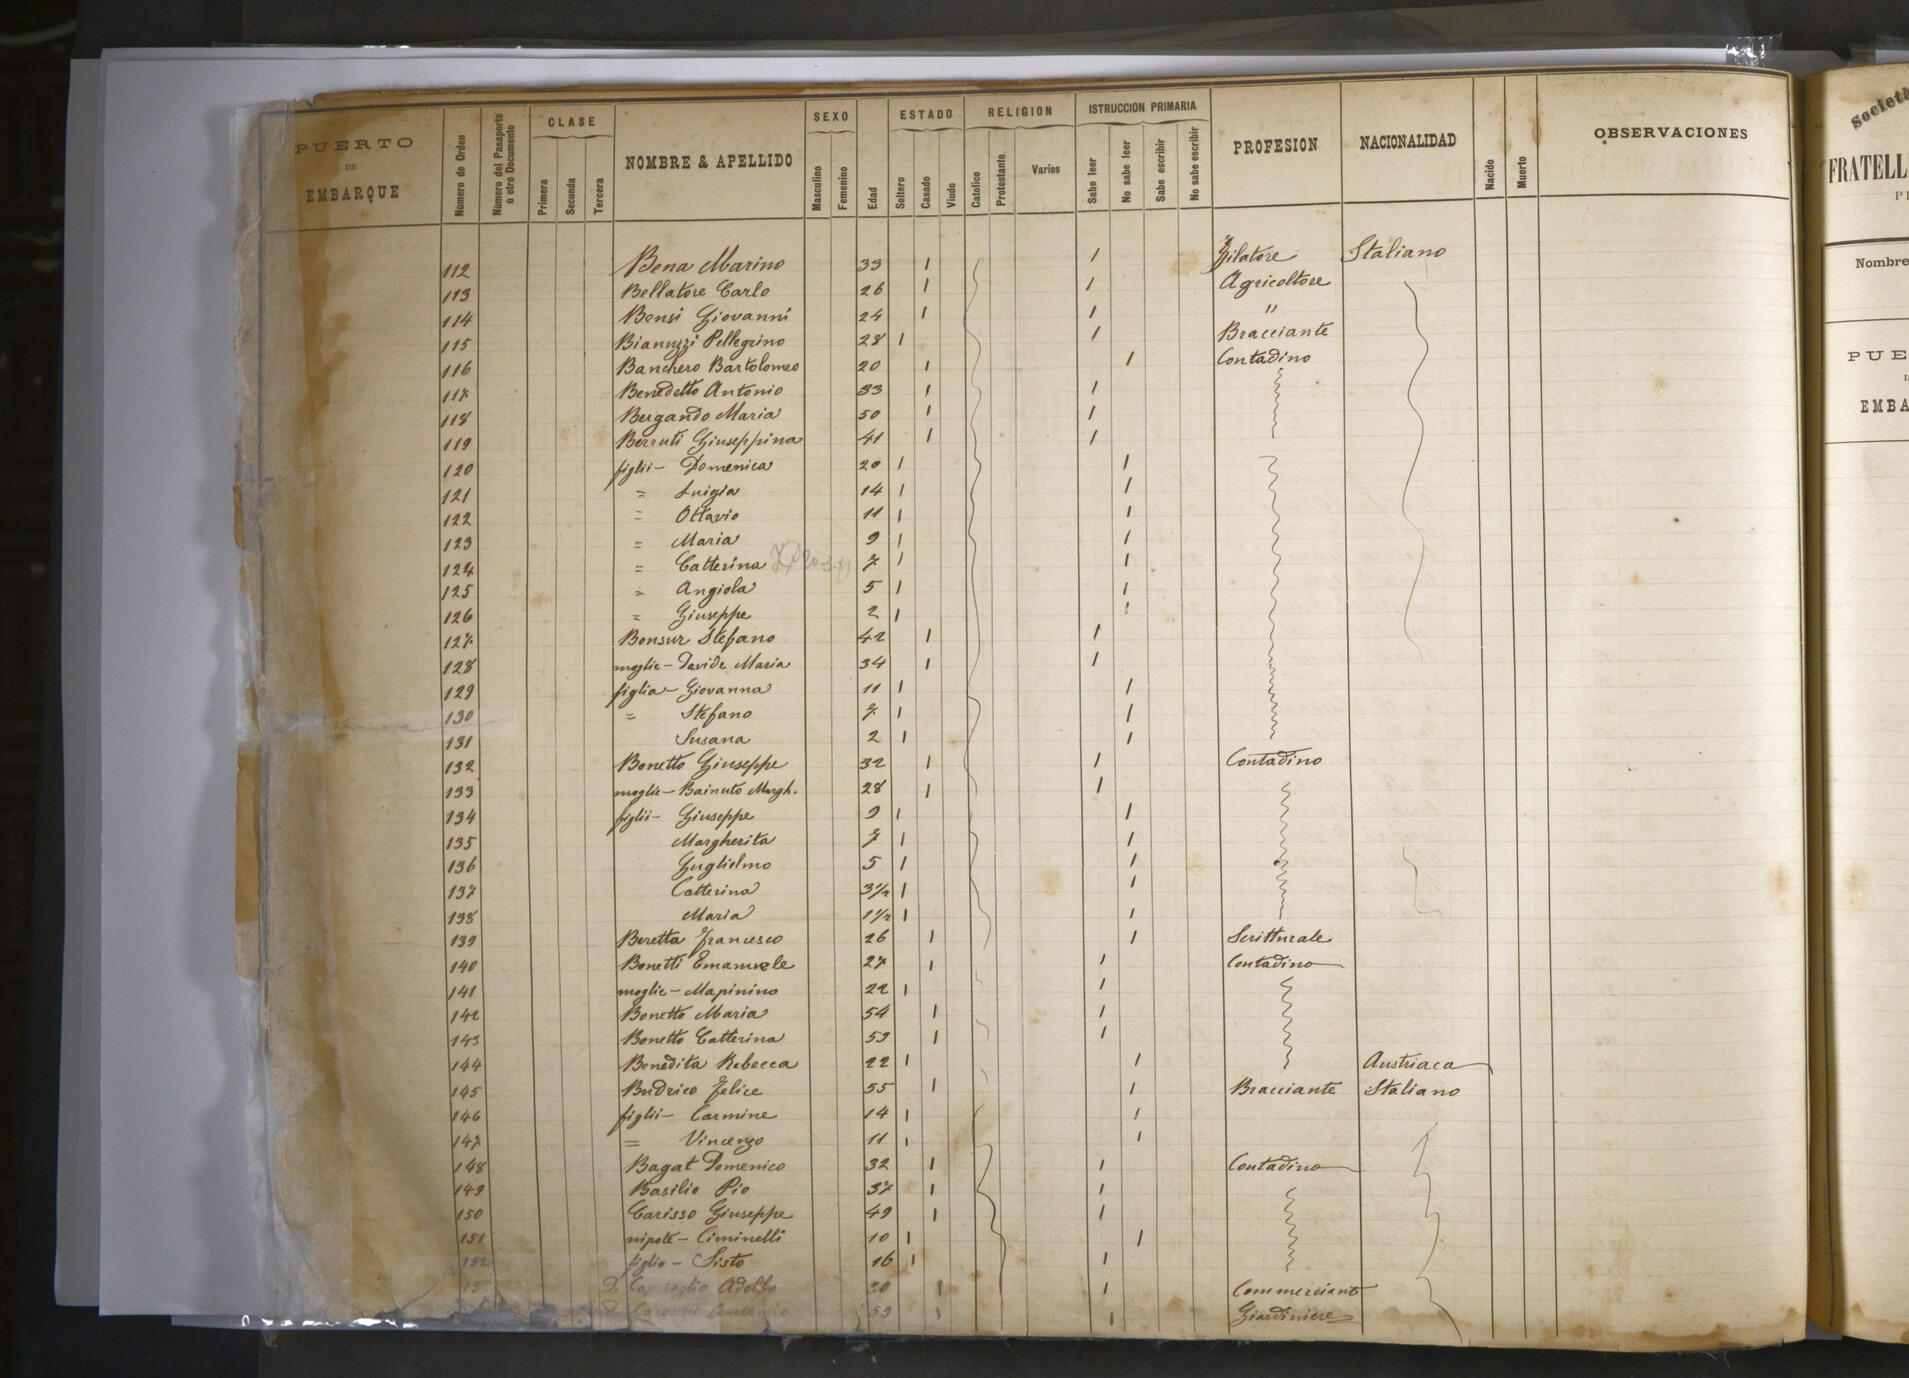 PUERTO DE EMBARQUE
Número de Orden
Número del Pasaporte ú otro Documento
CLASE
Primera Secunda Tercera
NOMBRE & APELLIDO
SEXO
Masculino Femenino
Edad
ESTADO
Soltero Casado Viudo
RELIGION
Catolico Protestante Varios
ISTRUCCION PRIMARIA
Sabe leer No sabe leer Sabe escribir No sabe escribir
PROFESION
NACIONALIDAD
Nacido
Muerto
OBSERVACIONES
112 Bena Marino 33 / / Filatore Italiano
113 Bellatore Carlo 26 / / Agricoltore
114 Bensi Giovanni 24 / / "
115 Bianuzzi Pellegrino 28 / / Bracciante
116 Banchero Bartolomeo 20 / / Contadino
117 Benedetto Antonio 33 / /
118 Bergando Maria 50 / /
119 Berruti Giuseppina 41 / /
120 figlii - Domenica 20 / /
121 = Luigia 14 / /
122 = Ottavio 11 / /
123 = Maria 9 / /
124 = Catterina 7 / /
125 = Angiola 5 / /
126 = Giuseppe 2 / /
127 Bonsur Stefano 42 / /
128 moglie - Davide Maria 34 / /
129 figlia - Giovanna 11 / /
130 = Stefano 7 / /
131 Susana 2 / /
132 Bonetto Giuseppe 32 / / Contadino
133 moglie - Bainuto Margh. 28 / /
134 figlii - Giuseppe 9 / /
135 Margherita 7 / /
136 Guglielmo 5 / /
137 Catterina 3 1/2 / /
138 Maria 1 1/2 / /
139 Beretta Francesco 26 / / Scritturale
140 Bonetti Emanuele 27 / / Contadino
141 moglie - Mapinino 22 / /
142 Bonetto Maria 54 / /
143 Bonetto Catterina 59 / /
144 Benedita Rebecca 22 / / Austriaca
145 Budrico Felice 55 / / Bracciante Italiano
146 figlii - Carmine 14 / /
147 = Vincenzo 11 / /
148 Bagat Domenico 32 / / Contadino
149 Basilio Pio 37 / /
150 Carisso Giuseppe 49 / /
151 nipote - Ciminelli 10 / /
152 figlio - Sisto 16 / /
15 D. Adolfo 30 / / Commerciante
59 / / Giardiniere
Società
FRATELL
Nombre
PUE
EMBA